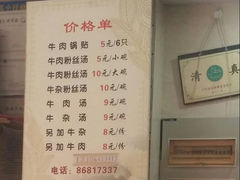 价格单
牛肉锅贴 5元/6只
牛肉粉丝汤 5元/小碗
牛肉粉丝汤 10元/大碗
牛杂粉丝汤 10元/碗
牛肉汤 9元/碗
牛杂汤 9元/碗
另加牛杂 8元/传
另加牛肉 8元/传
电话：86817337
清真